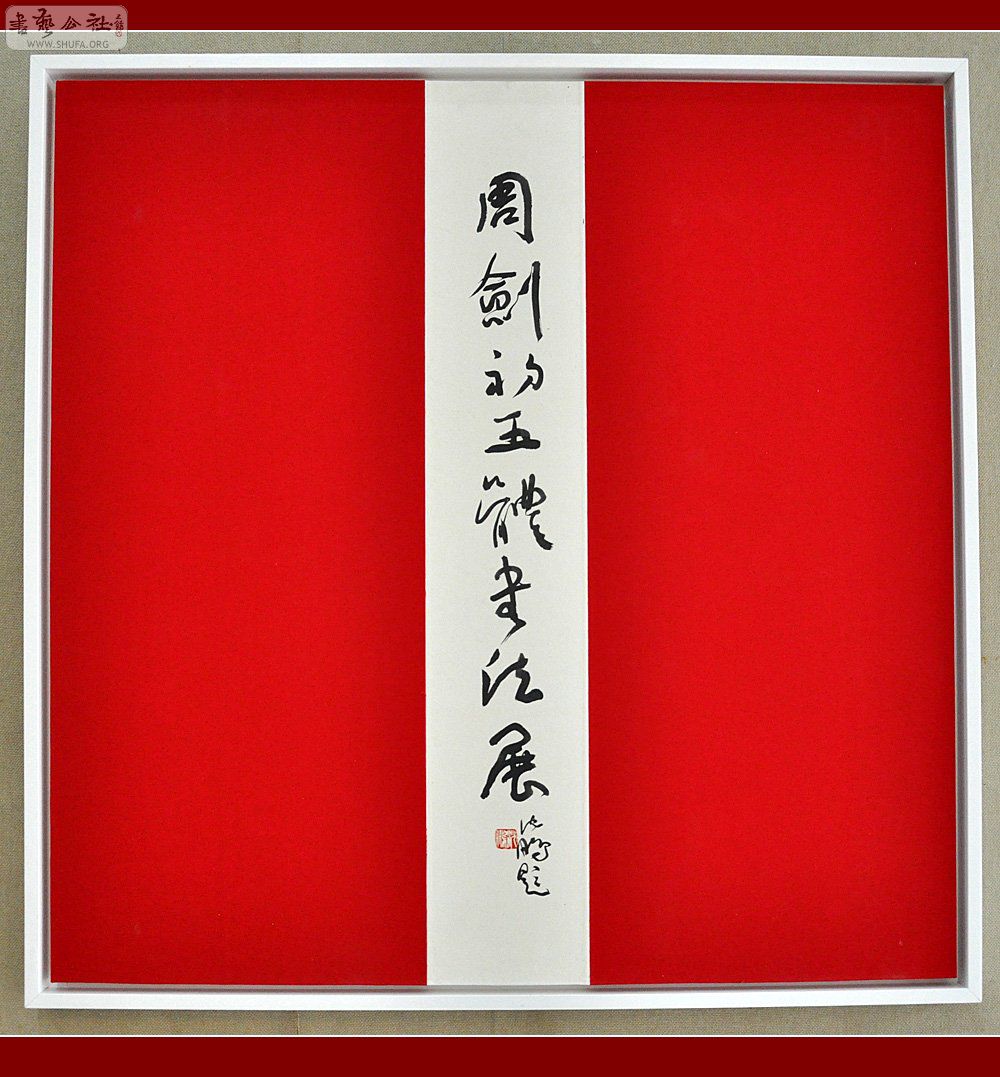 書藝公社
WWW.SHUFA.ORG
周劍初五體书法展
沈鹏題